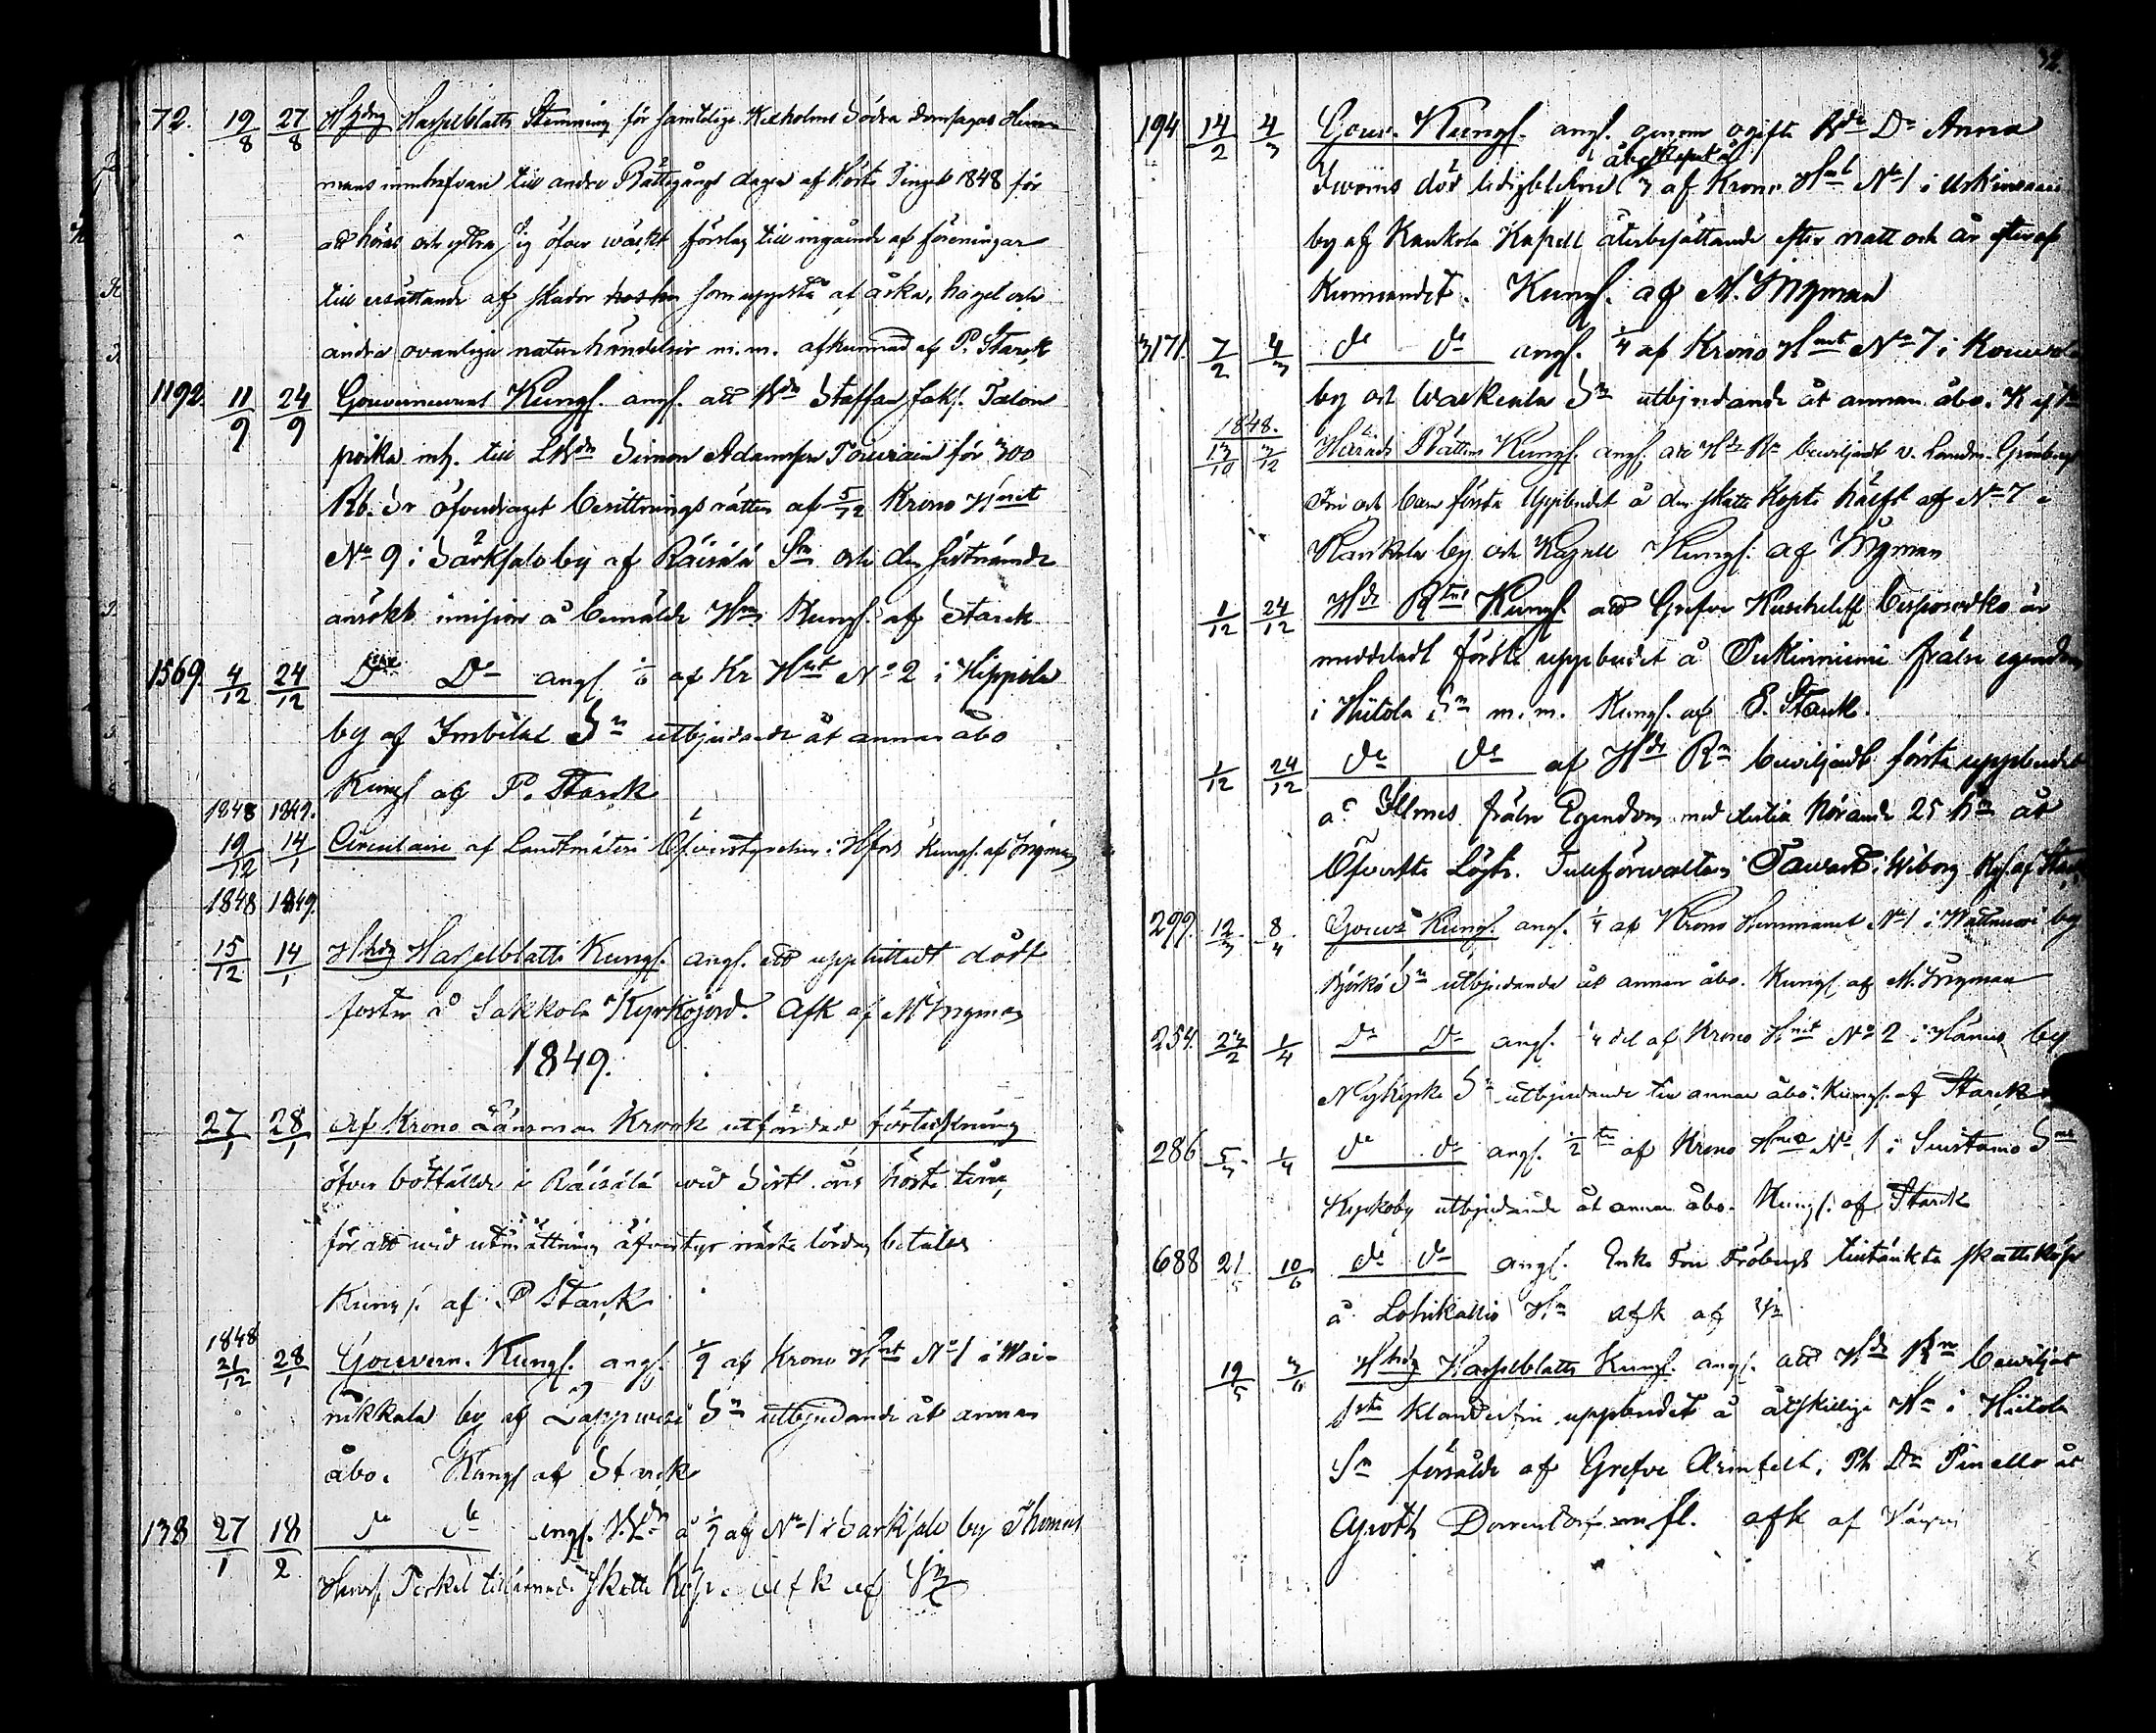 72. 19/8 27/8 Hhdg Hasselblatts Stemning för samtelige Kexholms Södra domsagas Hem-
mans innehafvare till andra Rättegångs dagen af Höste Tinget 1848 för
att höras och yttra sig öfver wäckt förslag till ingående af föreningar
till ersättande af skador som uppstå af åska, hagel och
andra ovanliga naturhändelser m.m. afkunnad af P. Starck
1192. 11/9 24/9 Gouverneurens Kungs. angs. att Bdn Staffan Jaks. Talon
poika till LBdn Simon Adamsson för 300
Rb. Sr öfverdraget besittningsrätten af 5/12 Krono Hnt
No 9 i Särksalo by af Räisälä Sn och den sistnämnde
ansökt imission å bemälde Hn Kungs. af Starck
1569. 4/12 24/12 Do Do angs 1/6 af Kr Hnt No 2 i Hippola
by af Imbilax Sn utbjudande åt annan åbo
Kungs af P. Starck
1848 1849.
19/12 14/1 Circulaire af Landtmäteri Öfverstyrelsen i Hfors Kungs. af Ingman
1848 1849.
15/12 14/1 Hhdg Hasselblatts Kungs. angs. ett upphittadt dödt
foster å Sakkola Kyrkojord. Afk af M Ingman
1849.
27/1 28/1 Af Krono Länsman Krook utfärdad förteckning
öfver bötfällde i Räisälä wid Sistl. års höste ting,
för att wid utmättnings äfventyr nästa lördag betalas
Kungs. af P Starck
1848
21/12 28/1 Gouvern. Kungs. angs. 1/9 af Krono Hnt No 1 i Wai-
nikkala by af Lappwesi Sn utbjudande åt annan
åbo. Kungs af Starck
138 27/1 18/2 de de angs. å 1/2 af No 1 i Särkisalo by Thomas
Skatte Köp. afk af Ingm
194 14/2 4/3 Gouv. Kungs. angs. genom ogifta Bde Dr Anna
Iwoins död ledigblefne åbyskapet å 1/3 af Krono Hmt No 1 i
by af Kaukola Kapell återbesättande efter natt och år efter af
Kunnandet. Kungs. af M. Ingman
3171. 7/2 4/3 de de angs. 1/4 af Krono Hmt No 7 i Kouwola
by och Walkeala Sn utbjudande åt annan åbo. K af Im
1848.
13/10 3/12 Härads Rättens Kungs. angs. att Hds Rn bewiljadt v. Landm. Grönberg
Fru och barn första Uppbudet å den skatte köpta hälft af No 7 i
Kaukola by och Kapell Kungs. af Ingman
1/12 24/12 Hds Rtns Kungs. att Grefve Kuscheleff Besporodko är
meddeladt första uppbudet å frälse egendom
i Hiitola Sn m.m. Kungs. af P. Starck.
1/12 24/12 de de af Hds Rn bewiljadt första uppbudet
å Ilmes frälse Egendom med dertill hörande 25 hn åt
Öfverste Löjtn. Tullförwaltaren Tawast i Wiborg Kgs. af Starck
299. 12/3 8/4 Gouvs Kungs. angs. 1/4 af Krono Hemmanet No 1 i by
Björkö Sn utbjudande åt annan åbo. Kungs af M. Ingman
254. 27/2 1/4 Do Do angs. 1/4 del af Krono Hnt No 2 i by
Nykyrko Sn utbjudande till annan åbo. Kungs. af Starck
286 5/3 1/4 de de angs. 1/2 te af Krono Hmt No 1 i Suistamo Sns
Kyrkoby utbjudande åt annan åbo. Kungs. af Starck
688 21/5 10/6 de de angs. Enke Fru Frobergs tilltänkta skatteköp
å Lohikallio Hn afk af Im
19/5 3/6 Hhdg Hasselblatts Kungs. angs. att Hds Rn bewiljat
1sta klanderfri uppbudet å åtskillige Hn i Hiitola
Sn försålde af Grefve Armfelt, Ph Dr Pinello åt
Ageoth m.fl. afk af